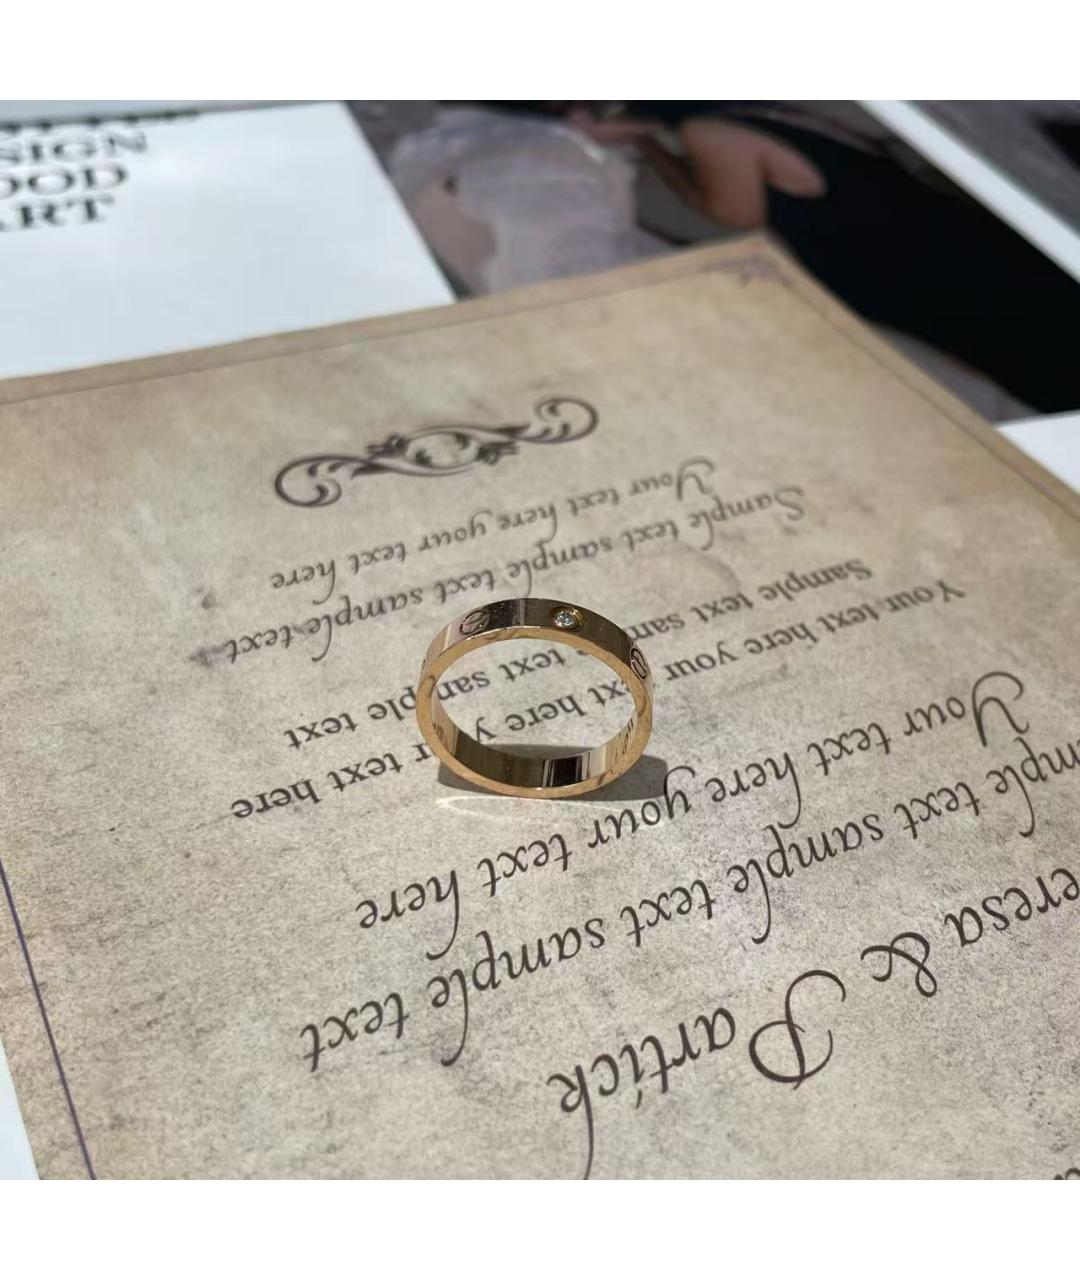 SIGN
OOD
ART
eresa & Partick
mple text sample text sample text
Your text here your text here
Your text here your text here your text here
Sample text sample text sample text
Sample text sample text sample text
Your text here your text here